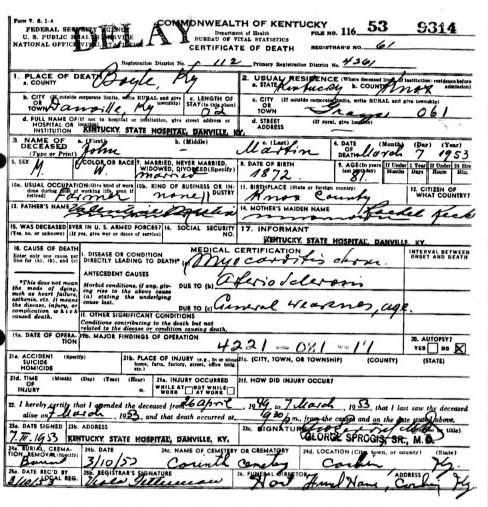 FORM V. S. 1-A
DELAY
COMMONWEALTH OF KENTUCKY
FEDERAL SECURITY AGENCY
U. S. PUBLIC HEALTH SERVICE
NATIONAL OFFICE VITAL STATISTICS
Department of Health
BUREAU OF VITAL STATISTICS
CERTIFICATE OF DEATH
FILE NO. 116 53 9314
REGISTRAR'S NO. 61
Registration District No. 112 Primary Registration District No. 4261
1. PLACE OF DEATH
a. COUNTY Boyle, Ky
2. USUAL RESIDENCE (Where deceased lived. If institution: residence before admission)
a. STATE Kentucky b. COUNTY Knox
b. CITY OR TOWN Danville, Ky
c. LENGTH OF STAY (in this place)
c. CITY OR TOWN 061
d. FULL NAME OF HOSPITAL OR INSTITUTION KENTUCKY STATE HOSPITAL, DANVILLE, KY.
d. STREET ADDRESS (If rural, give location)
3. NAME OF DECEASED (Type or Print) a. (First) John b. (Middle) c. (Last) Martin
4. DATE OF DEATH (Month) (Day) (Year) March 7 1953
5. SEX M.
6. COLOR OR RACE W.
7. MARRIED, NEVER MARRIED, WIDOWED, DIVORCED (Specify) married
8. DATE OF BIRTH 1872
9. AGE (In years last birthday) 81
10a. USUAL OCCUPATION Farmer
10b. KIND OF BUSINESS OR INDUSTRY none
11. BIRTHPLACE (State or foreign country) Knox County
12. CITIZEN OF WHAT COUNTRY?
13. FATHER'S NAME
14. MOTHER'S MAIDEN NAME Rachel Keck
15. WAS DECEASED EVER IN U. S. ARMED FORCES?
16. SOCIAL SECURITY NO.
17. INFORMANT
KENTUCKY STATE HOSPITAL, DANVILLE, KY.
18. CAUSE OF DEATH
Enter only one cause per line for (a), (b), and (c)
MEDICAL CERTIFICATION
INTERVAL BETWEEN ONSET AND DEATH
I. DISEASE OR CONDITION DIRECTLY LEADING TO DEATH* (a) Myocarditis chron.
*This does not mean the mode of dying, such as heart failure, asthenia, etc. It means the disease, injury, or complication which caused death.
ANTECEDENT CAUSES
Morbid conditions, if any, giving rise to the above cause (a) stating the underlying cause last.
DUE TO (b)
DUE TO (c) General weaknes, age.
II. OTHER SIGNIFICANT CONDITIONS
Conditions contributing to the death but not related to the disease or condition causing death.
19a. DATE OF OPERATION
19b. MAJOR FINDINGS OF OPERATION
4221 - 061 - 11
20. AUTOPSY?
YES NO X
21a. ACCIDENT SUICIDE HOMICIDE (Specify)
21b. PLACE OF INJURY (e.g., in or about home, farm, factory, street, office bldg., etc.)
21c. (CITY, TOWN, OR TOWNSHIP) (COUNTY) (STATE)
21d. TIME OF INJURY (Month) (Day) (Year) (Hour)
21e. INJURY OCCURRED
WHILE AT WORK NOT WHILE AT WORK
21f. HOW DID INJURY OCCUR?
22. I hereby certify that I attended the deceased from 26 April, 1949, to 7 March, 1953, that I last saw the deceased
alive on 7 March, 1953, and that death occurred at m., from the causes and on the date stated above.
23a. DATE SIGNED 7 III. 1953
23b. ADDRESS KENTUCKY STATE HOSPITAL, DANVILLE, KY.
23c. SIGNATURE
GEORGE SPROGIS, SR., M. D.
24a. BURIAL, CREMATION, REMOVAL (Specify) Burial
24b. DATE 3/10/53
24c. NAME OF CEMETERY OR CREMATORY Corinth Cemetery
24d. LOCATION (City, town, or county) (State) Corbin Ky.
25a. DATE REC'D BY LOCAL REG.
25b. REGISTRAR'S SIGNATURE
26. FUNERAL DIRECTOR Hart Funeral Home, ADDRESS Corbin Ky